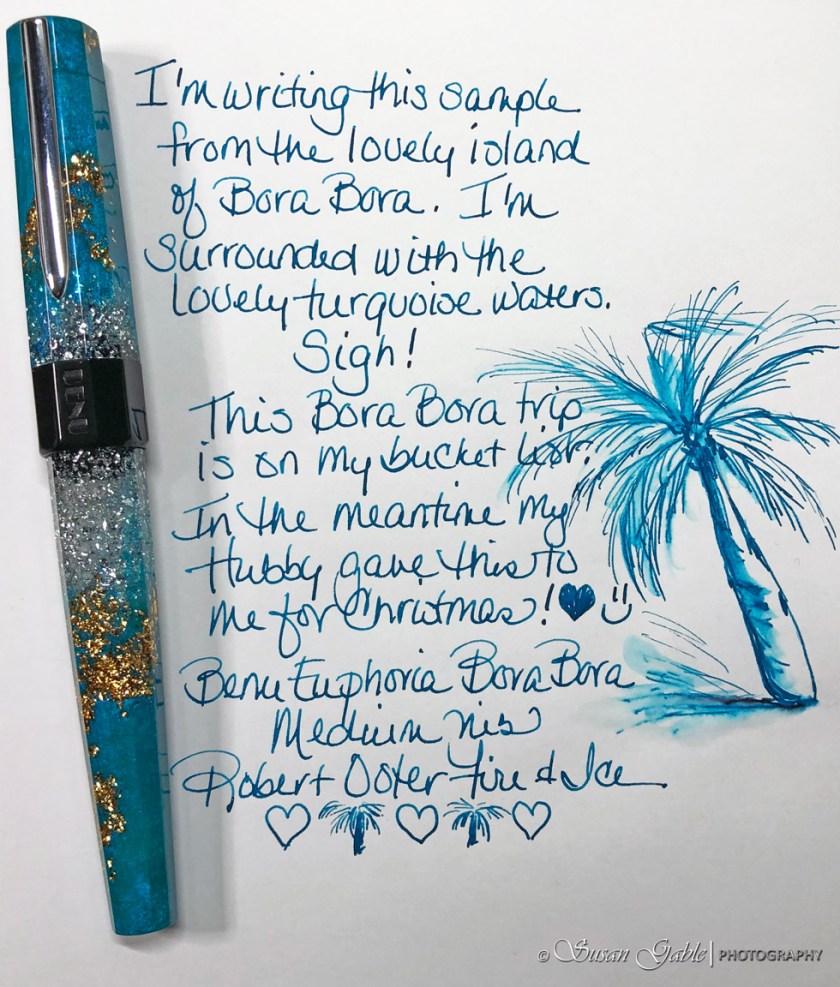 I'm writing this sample
from the lovely island
of Bora Bora. I'm
surrounded with the
lovely turquoise waters.
Sigh!
This Bora Bora trip
is on my bucket list.
In the meantime my
Hubby gave this to
me for Christmas!
Benu Euphoria Bora Bora
Medium nib
Robert Oster Fire & Ice
BENU
© Susan Gable | PHOTOGRAPHY